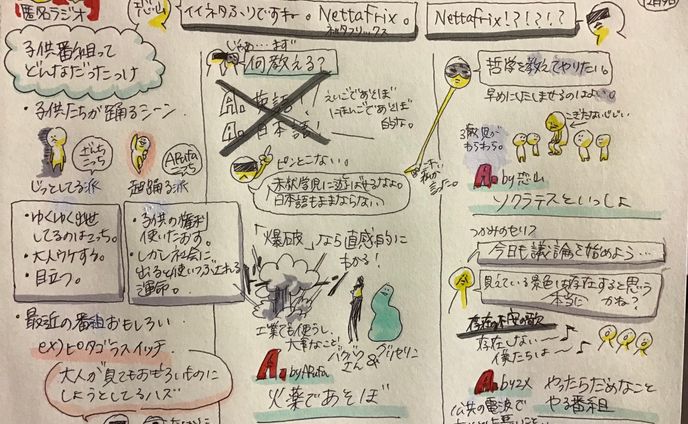 匿名ラジオ
恐山
子供番組って
どんなだったっけ
・子供たちが踊るシーン
ぎんち
こっち
ARuFa
こっち
じっとしてる派
超踊る派
・ゆくゆく出世
してるのはこっち。
・大人ウケする。
・目立つ。
・子供の権利
使いたおす。
・しかし社会に
出ると使いつぶされる
運命。
・最近の番組おもしろい
ex)ピタゴラスイッチ
大人が見てもおもしろいものに
しようとしてるハズ
NettaFrix。
ネッタフリックス
じゃあ…まず
何教える?
A. 英語!
A. 日本語!
えいごであそぼ
にほんごであそぼ
ピンとこない。
未就学児に遊ばせるなよ。
日本語もままならない
「爆破」なら直感的に
わかる!
工業でも使うし、
大事なこと。
バクハツ
さん
&
グリセリン
A. by ARuFa
火薬であそぼ
NettaFrix!?!?!?
哲学を教えてやりたい。
3歳児が
わちゃわちゃ。
A. by 恐山
ソクラテスといっしょ
つかみのセリフ
今日も議論を始めよう…
見えている景色は存在すると思う
本当に
かね?
存在の不安の歌
存在しない〜
僕たちは〜
やったらだめなこと
やる番組
公共の電波で